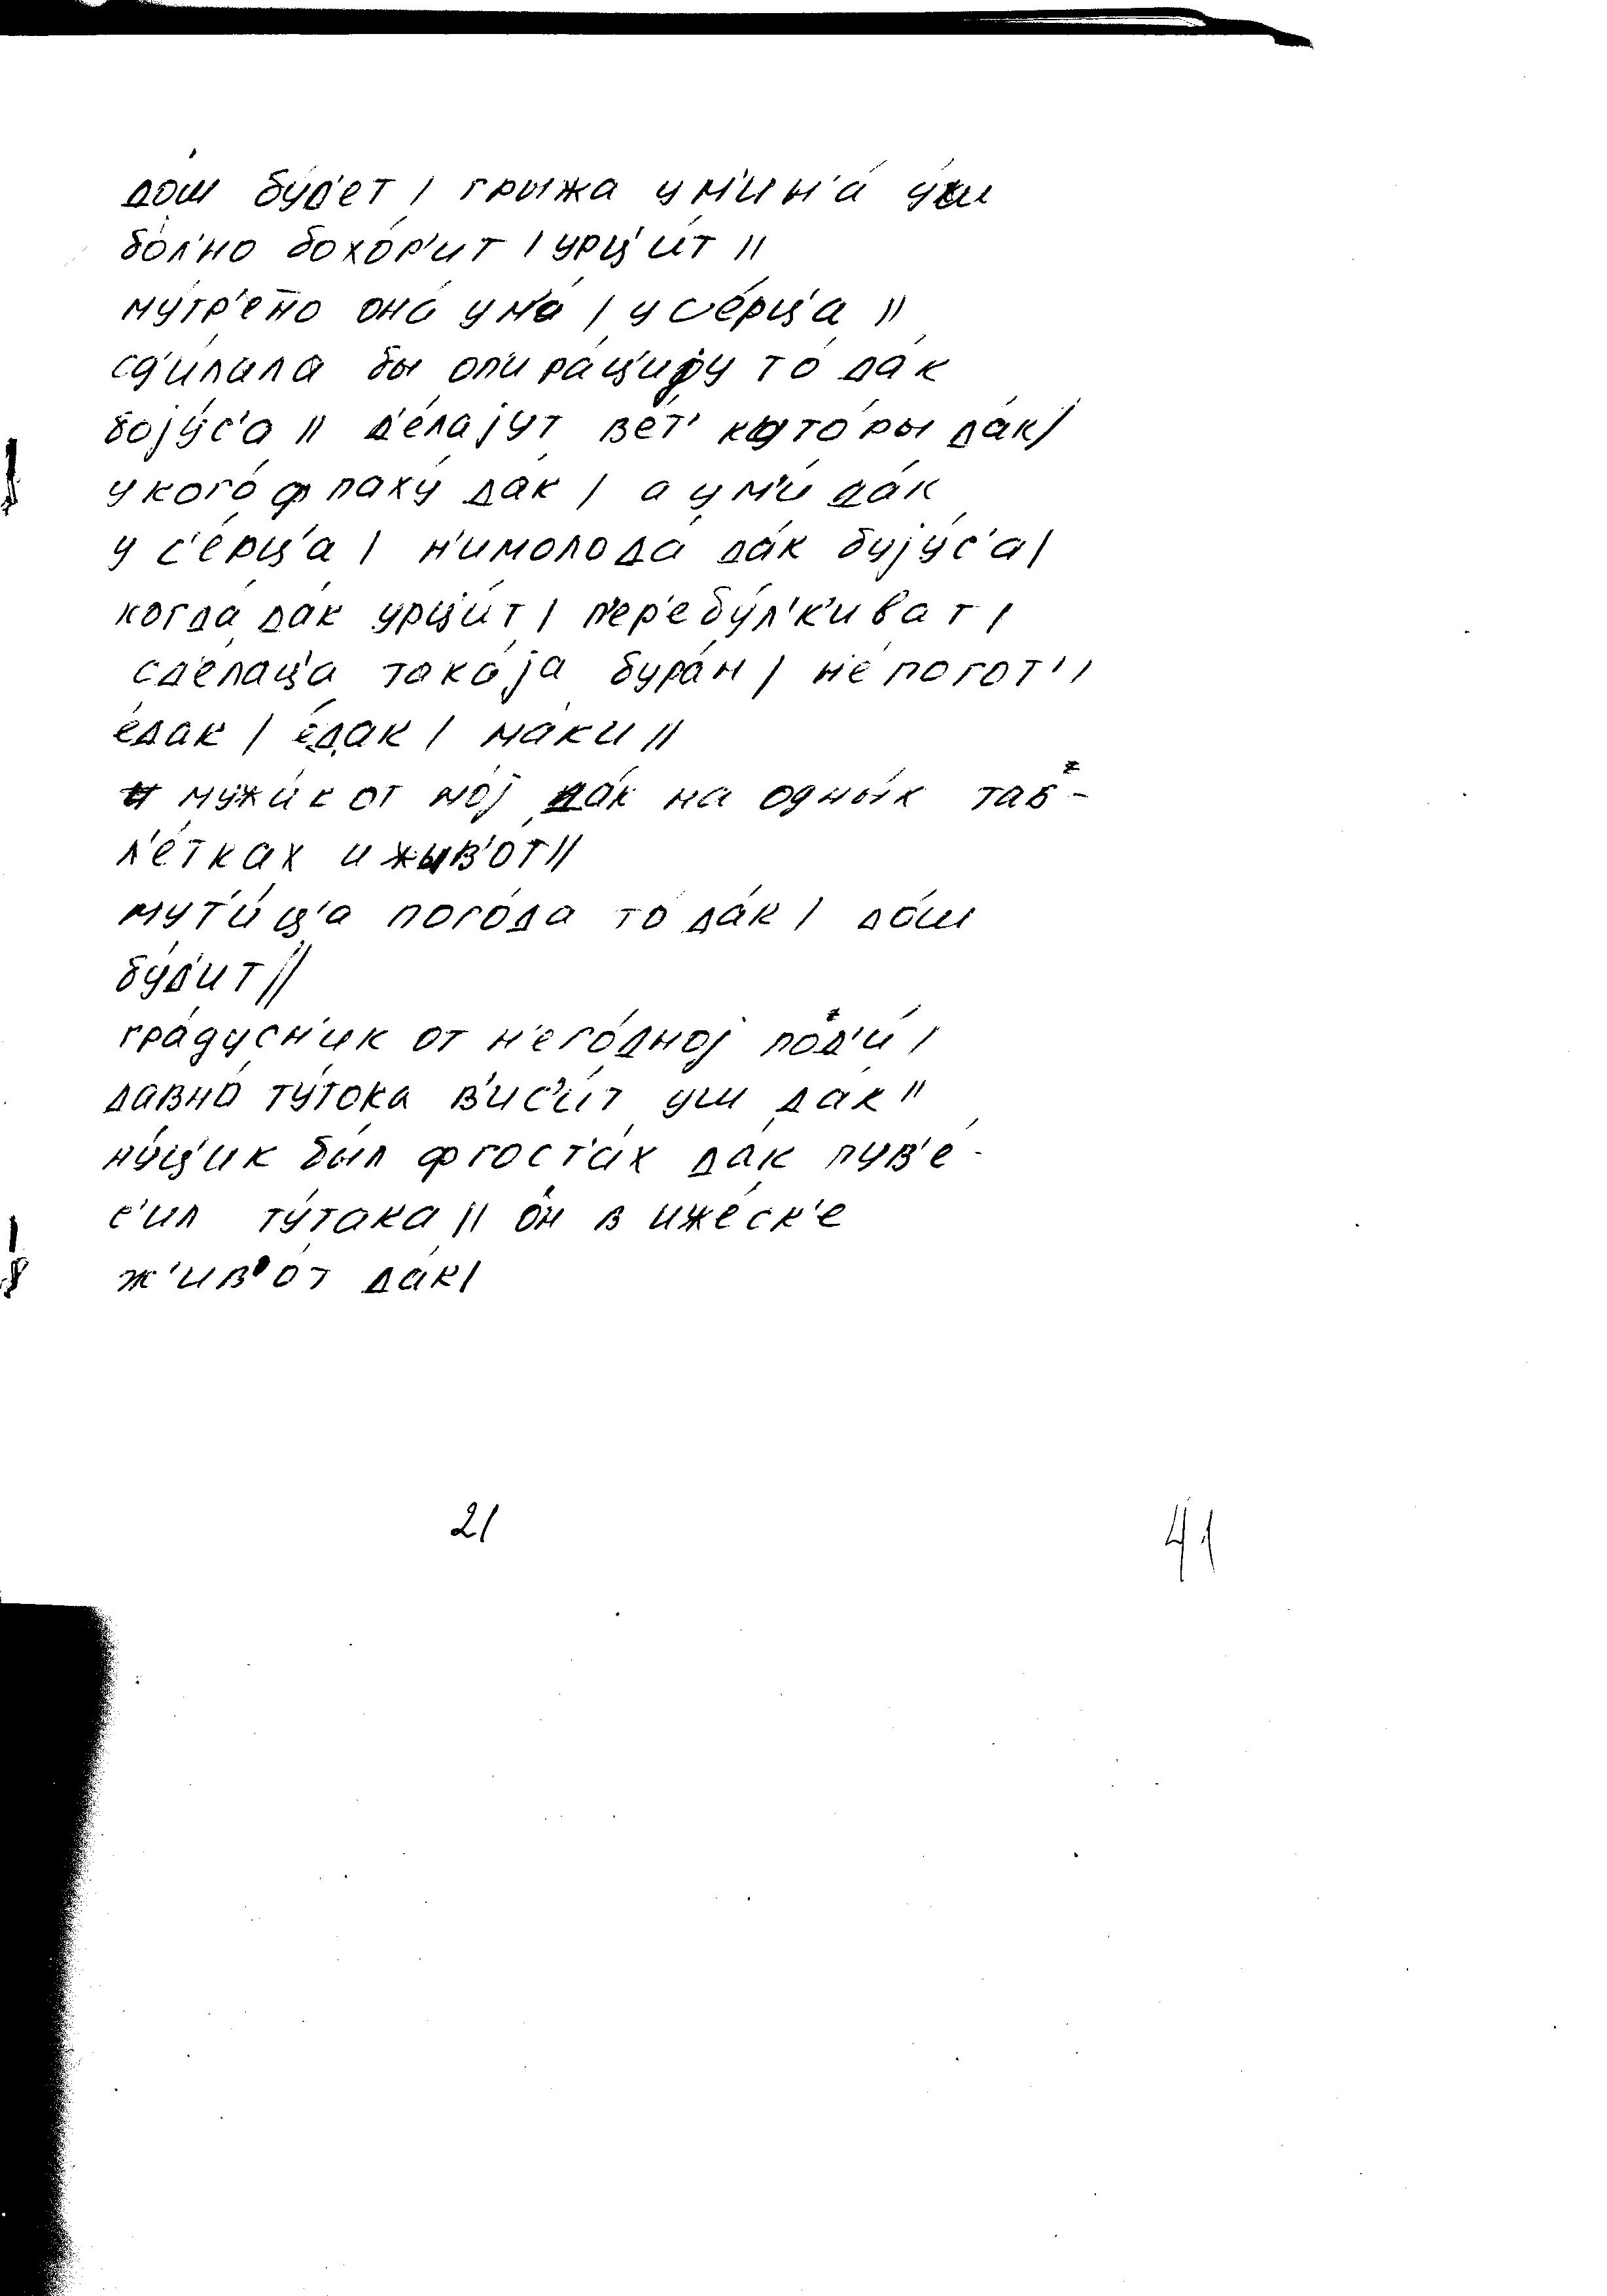 до́ш бу́д'ет / грыжа у м'ин'а́ уш
бо́л'но бохо́р'ит / урц'и́т //
му́тр'ено она́ у м'а́ / у се́рц'а //
сд'и́лала бы оп'ира́ц'ију то да́к
боју́с'а // д'е́лајут вет' кото́ры да́к /
у кого́ ф паху́ дак / а у м'и́ да́к
у с'е́рц'а / н'имолода́ да́к бују́с'а /
когда́ дак урц'и́т / п'ер'ебу́л'к'иват /
сд'е́лаца така́ја бура́н / н'е́погот' /
е́дак / е́дак / маки //
мужи́к от мо́ј да́к на одны́х таб-
л'е́тках и жыв'о́т //
мут'и́ц'а пого́да то да́к / до́ш
бу́д'ит //
гра́дусн'ик от н'его́дној по́д'и́ /
давно́ ту́тока в'ис'и́т уш дак //
ну́ц'ик был ф гост'а́х да́к пув'е́-
с'ил ту́така // о́н в иже́ск'е
ж'ив'о́т да́к /
21
41